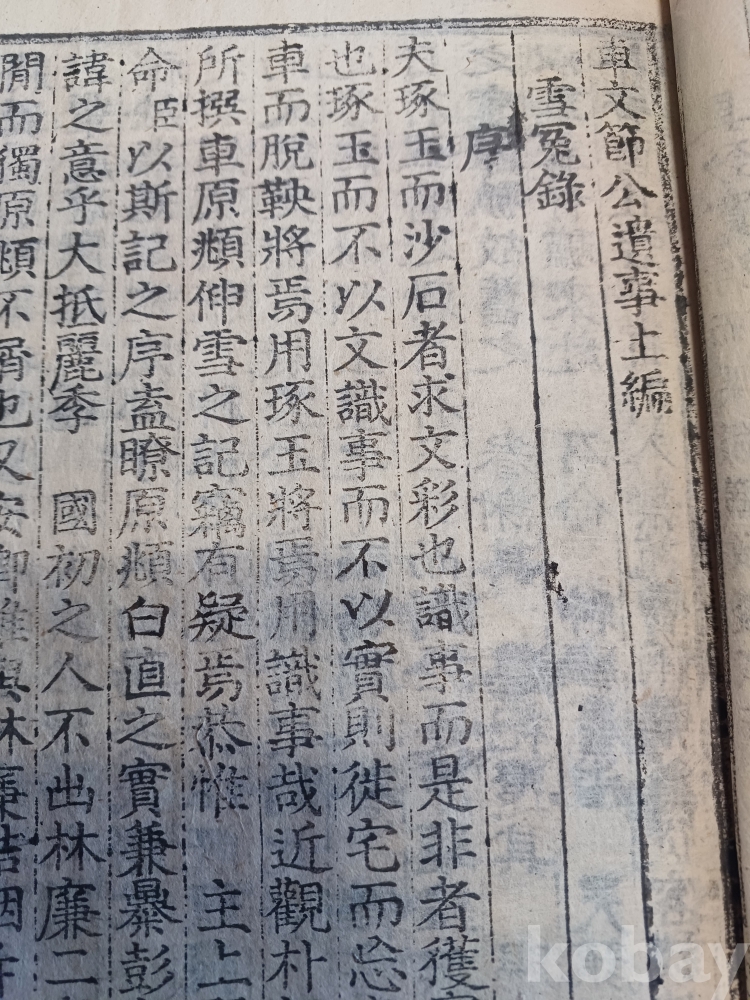 車文節公遺事上編
雪冤錄
序
夫琢玉而沙石者求文彩也識事而是非者獲
也琢玉而不以文識事而不以實則徙宅而忘
車而脫鞅將焉用琢玉將焉用識事哉近觀朴
所撰車原頫伸雪之記竊有疑焉恭惟 主上
命臣以斯記之序盍瞭原頫白直之實兼暴彭
諱之意乎大抵麗季 國初之人不出林廉二
間而獨原頫不屑也又安
kobay